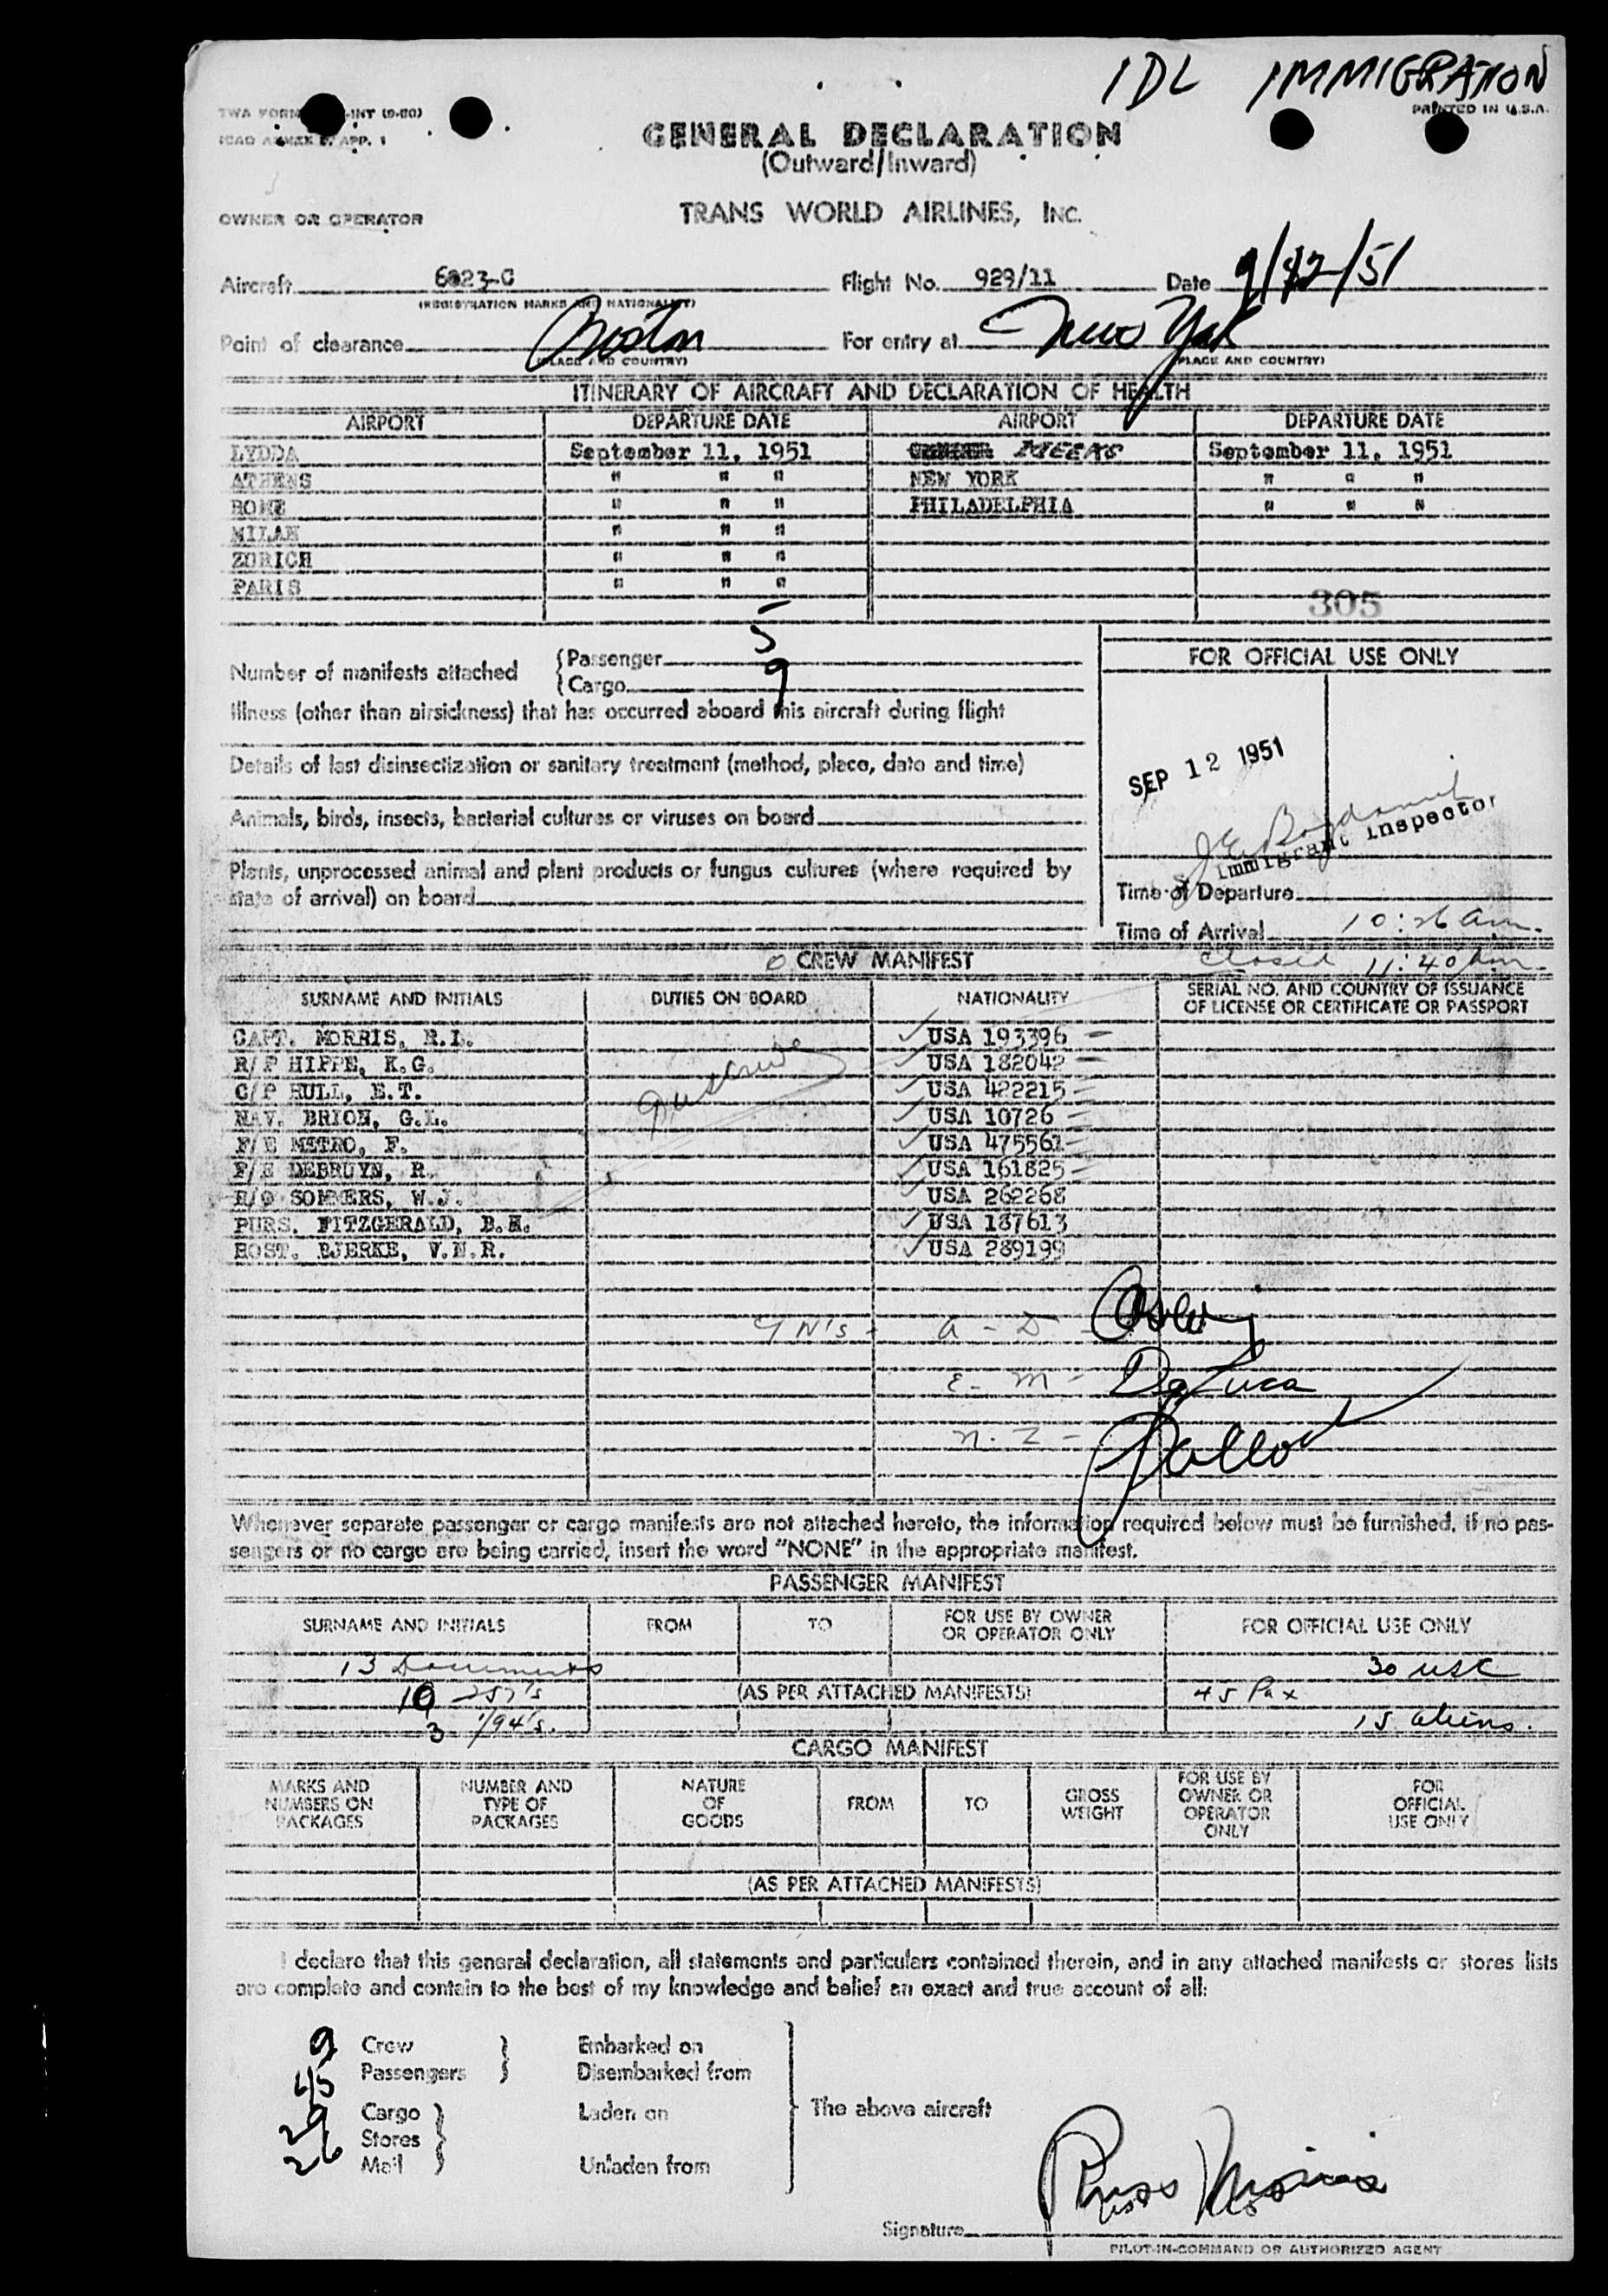 IDL IMMIGRATION
PRINTED IN U.S.A.
GENERAL DECLARATION
(Outward/Inward)
OWNER OR OPERATOR TRANS WORLD AIRLINES, INC.
Aircraft 6023-C Flight No. 929/11 Date 9/12/51
(REGISTRATION MARKS AND NATIONALITY)
Point of clearance Boston For entry at New York
(PLACE AND COUNTRY) (PLACE AND COUNTRY)
ITINERARY OF AIRCRAFT AND DECLARATION OF HEALTH
AIRPORT DEPARTURE DATE AIRPORT DEPARTURE DATE
LYDDA September 11, 1951 September 11, 1951
ATHENS " " " NEW YORK " " "
ROME " " " PHILADELPHIA " " "
MILAN " " "
ZURICH " " "
PARIS " " "
305
Number of manifests attached
Passenger 5
Cargo 9
Illness (other than airsickness) that has occurred aboard this aircraft during flight
Details of last disinsectization or sanitary treatment (method, place, date and time)
Animals, birds, insects, bacterial cultures or viruses on board
Plants, unprocessed animal and plant products or fungus cultures (where required by
state of arrival) on board
FOR OFFICIAL USE ONLY
SEP 12 1951
Immigrant Inspector
Time of Departure
Time of Arrival 10:26 am.
Closed 11:40 Am.
CREW MANIFEST
SURNAME AND INITIALS DUTIES ON BOARD NATIONALITY SERIAL NO. AND COUNTRY OF ISSUANCE
OF LICENSE OR CERTIFICATE OR PASSPORT
CAPT. MORRIS, R.I. USA 193396
R/F HIPPE, K.G. USA 182042
C/P HULL, E.T. USA 422215
NAV. BRION, G.L. USA 10726
F/E METRO, F. USA 475561
F/E DEBRUYN, R. USA 161825
R/O SOMMERS, W.J. USA 262268
PURS. FITZGERALD, B.E. USA 187613
HOST. BJERKE, V.N.R. USA 289199
9 N's - A - D -
E - M - DeLuca
N - Z -
Whenever separate passenger or cargo manifests are not attached hereto, the information required below must be furnished. If no pas-
sengers or no cargo are being carried, insert the word "NONE" in the appropriate manifest.
PASSENGER MANIFEST
SURNAME AND INITIALS FROM TO FOR USE BY OWNER
OR OPERATOR ONLY FOR OFFICIAL USE ONLY
13 Documents 30 USC
10 257's (AS PER ATTACHED MANIFESTS) 45 Pax
3 1/94's. 15 aliens.
CARGO MANIFEST
MARKS AND
NUMBERS ON
PACKAGES
NUMBER AND
TYPE OF
PACKAGES
NATURE
OF
GOODS
FROM
TO
GROSS
WEIGHT
FOR USE BY
OWNER OR
OPERATOR
ONLY
FOR
OFFICIAL
USE ONLY
(AS PER ATTACHED MANIFESTS)
I declare that this general declaration, all statements and particulars contained therein, and in any attached manifests or stores lists
are complete and contain to the best of my knowledge and belief an exact and true account of all:
9 Crew Embarked on
45 Passengers Disembarked from
29 Cargo Laden on The above aircraft
Stores
26 Mail Unladen from
Signature Russ Morris
PILOT-IN-COMMAND OR AUTHORIZED AGENT